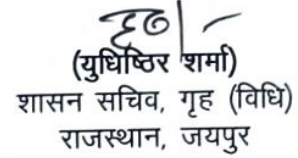 ह०/-
(युधिष्ठिर शर्मा)
शासन सचिव, गृह (विधि)
राजस्थान, जयपुर